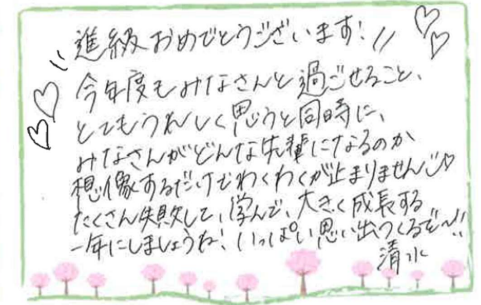 進級おめでとうございます!
今年度もみなさんと過ごせること、
とてもうれしく思うと同時に、
みなさんがどんな先輩になるのか
想像するだけでわくわくが止まりません♡
たくさん失敗して、学んで、大きく成長する
一年にしましょうね!いっぱい思い出つくるぞ〜!!
清水